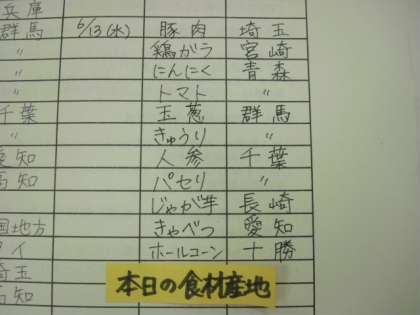 兵庫
群馬 6/13(水) 豚肉 埼玉
〃 鶏がら 宮崎
〃 にんにく 青森
トマト 〃
千葉 玉葱 群馬
〃 きゅうり
愛知 人参 千葉
高知 パセリ 〃
じゃが芋 長崎
国地方 きゃべつ 愛知
イ ホールコーン 十勝
埼玉
高知
本日の食材産地